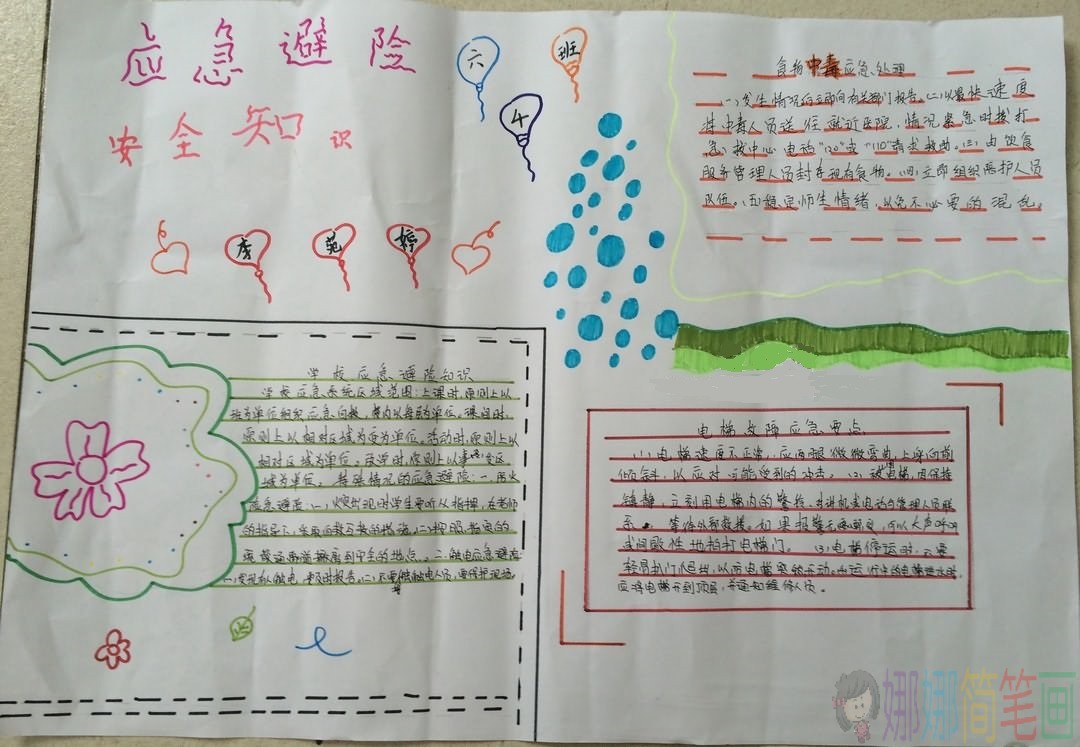 应急避险
安全知识
六
4
班
李
苑
婷
食物中毒应急处理
(一)发生情况后立即向有关部门报告。(二)以最快速度
将中毒人员送往就近医院,情况紧急时拨打
急救中心电话"120"或"110"请求救助。(三)由饮食
服务管理人员封存现有食物。(四)立即组织陪护人员
队伍。(五)稳定师生情绪,以免不必要的混乱。
学校应急避险知识
学校应急系统区域范围:上课时,原则上以
班为单位组织应急自救,
原则上以相对区域为单位。活动时,原则上以
相对区域为单位。放学时,原则上以
域为单位。特殊情况的应急避险:一、防火
应急避险:(一)火突出现时学生要听从指挥,在老师
的指导下,
地点。二、触电应急避险
(一)发现有人触电,及时报告。(二)不要触触电人员,要保护现场。
电梯故障应急要点
(1)电梯速度不正常,应两腿微微弯曲,上身向前
倾斜,以应对可能受到的冲击。(2)被困电梯,保持
镇静,立刻用电梯内的警铃、对讲机或电话与管理人员联
系,等待外部救援。如果报警无法,可以大声呼叫
或间歇性地拍打电梯门。(3)电梯停运时,不要
轻易扒门爬出,以防电梯突然开动。
应将电梯开到顶层,并通知维修人员。
娜娜简笔画